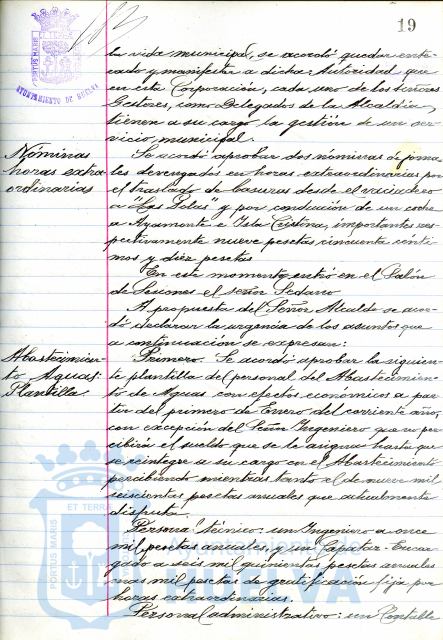 19
PORTUS MARIS
ET TERRAE
AYUNTAMIENTO DE HUELVA
la vida municipal, se acordó quedar ente-
rado y manifestar a dicha Autoridad que
en esta Corporación, cada uno de los señores
Gestores, como Delegados de la Alcaldia,
tienen a su cargo la gestión de un ser-
vicio municipal.
Nóminas
horas extra-
ordinarias
Se acordó aprobar dos nóminas de jorna-
les devengados en horas extraordinarias por
el traslado de basuras desde el vaciadero
a "Las Peles" y por conducción de un coche
a Ayamonte e Isla Cristina, importantes res-
pectivamente nueve pesetas cincuenta cénti-
mos y diez pesetas
En este momento entró en el Salón
de Sesiones el señor Sedano
A propuesta del Señor Alcalde se acor-
dó declarar la urgencia de los asuntos que
a continuación se expresan:
Abastecimien-
to Aguas.
Plantilla.
Primero. Se acordó aprobar la siguien-
te plantilla del personal del Abastecimien-
to de Aguas con efectos económicos a par-
tir del primero de Enero del corriente año,
con excepción del Señor Ingeniero que no per-
cibirá el sueldo que se le asigna hasta que
se reintegre a su cargo en el Abastecimiento
percibiendo mientras tanto el de nueve mil
seiscientas pesetas anuales que actualmente
disfruta.
Personal técnico: un Ingeniero a once
mil pesetas anuales, y un Capataz-Encar-
gado a seis mil quinientas pesetas anuales
mas mil pesetas de gratificación fija por
horas extraordinarias.
Personal administrativo: un Contable
PORTUS MARIS
ET TERRAE
Ayuntamiento de
HUELVA